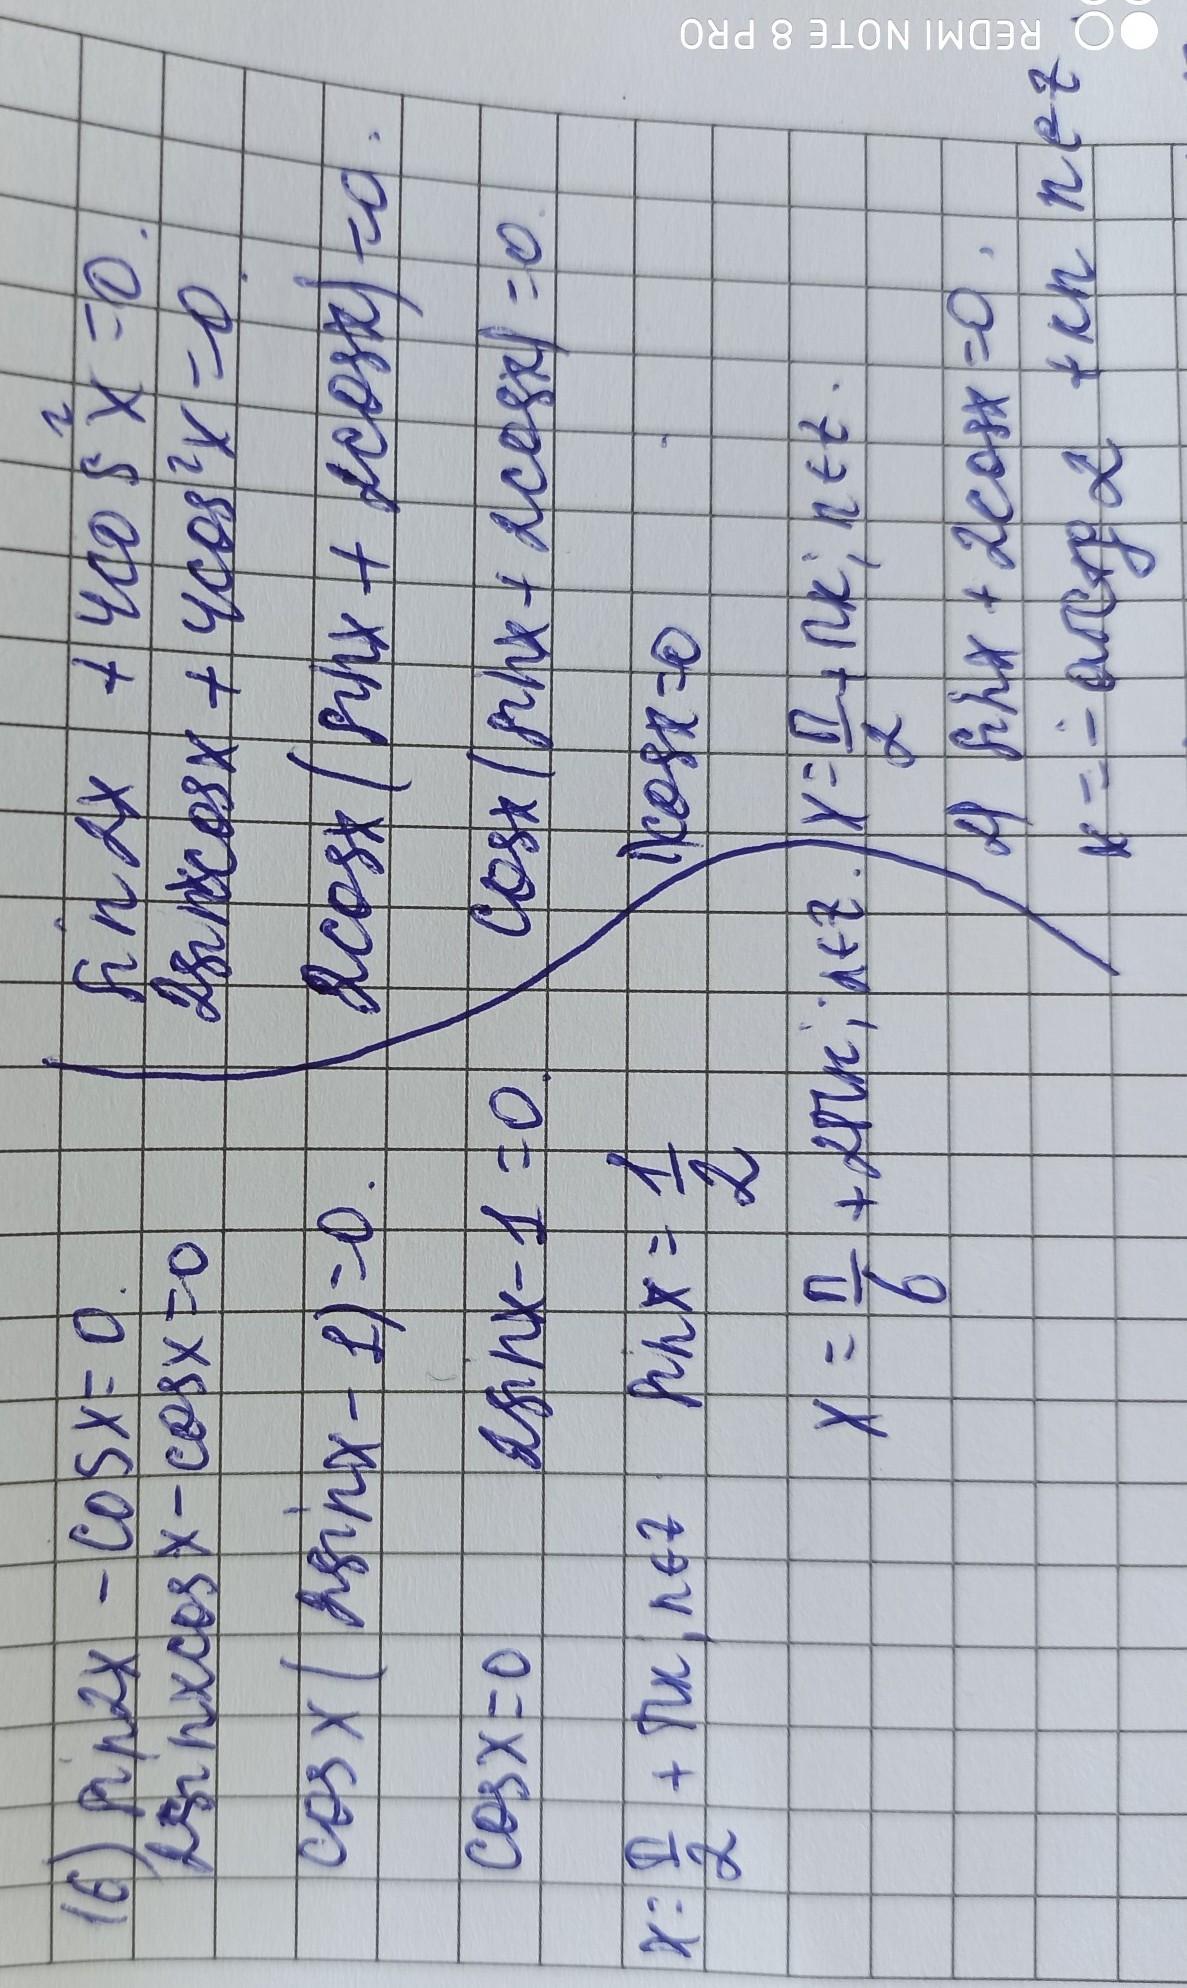 16) sin2x - cosx = 0.
2sinxcosx - cosx = 0
cosx(2sinx - 1) = 0.
cosx = 0 2sinx - 1 = 0.
x = π/2 + πn, n∈z sinx = 1/2
x = π/6 + 2πn; n∈z.
sin2x + 4cos²x = 0.
2sinxcosx + 4cos²x = 0.
2cosx(sinx + 2cosx) = 0.
cosx(sinx + 2cosx) = 0.
1) cosx = 0
x = π/2 + πn; n∈z.
2) sinx + 2cosx = 0.
x = - arctg 2 + πn n∈z
REDMI NOTE 8 PRO